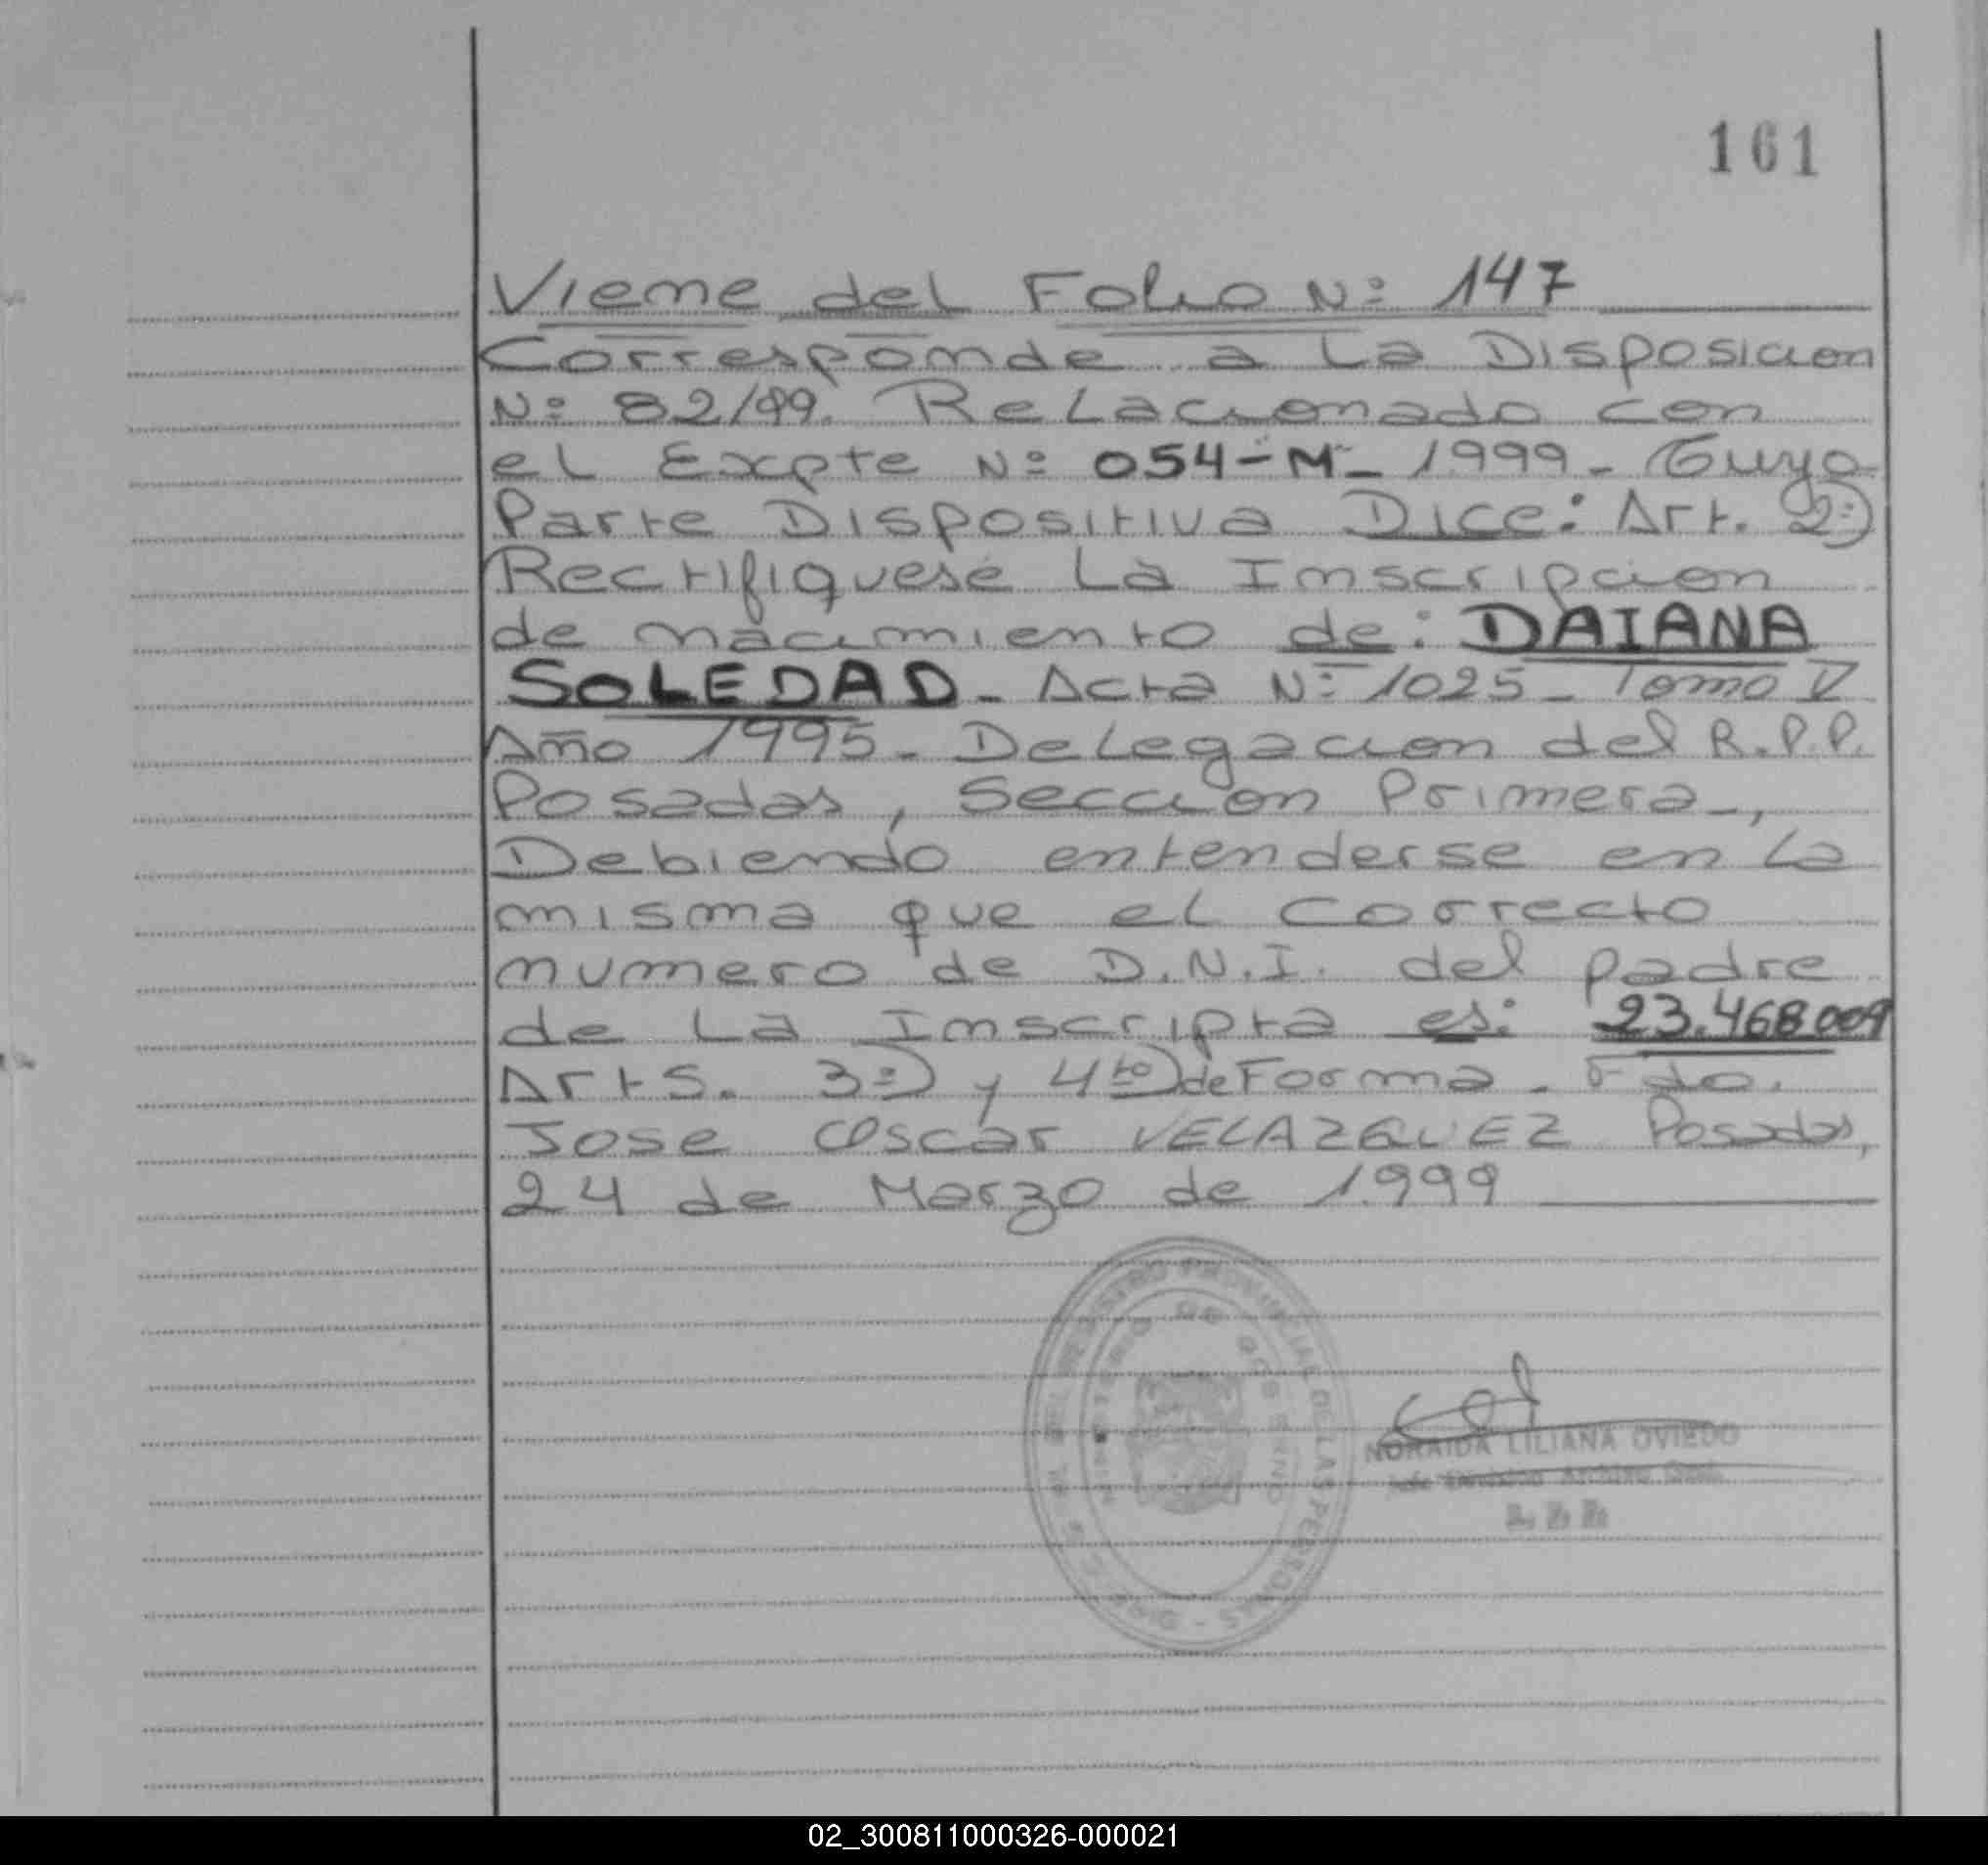 161
Viene del Folio Nº 147
Corresponde a La Disposicion
Nº 82/99. Relacionado con
el Expte Nº 054-M-1999- Cuya
Parte Dispositiva Dice: Art. 2º)
Rectifiquese La Inscripcion
de nacimiento de: DAIANA
SOLEDAD- Acta Nº 1025- Tomo V
Año 1995- Delegacion del R.P.P.
Posadas, Seccion Primera-,
Debiendo entenderse en La
misma que el correcto
numero de D.N.I. del padre
de La Inscripta es: 23.468009
Arts. 3º) y 4to) de Forma. Fdo.
Jose Oscar VELAZQUEZ Posadas,
24 de Marzo de 1999
PROVINCIAL DE LAS PERSONAS
MINISTERIO DE GOBIERNO
NORAIDA LILIANA OVIEDO
Jefe Division Archivo Gral.
02_300811000326-000021